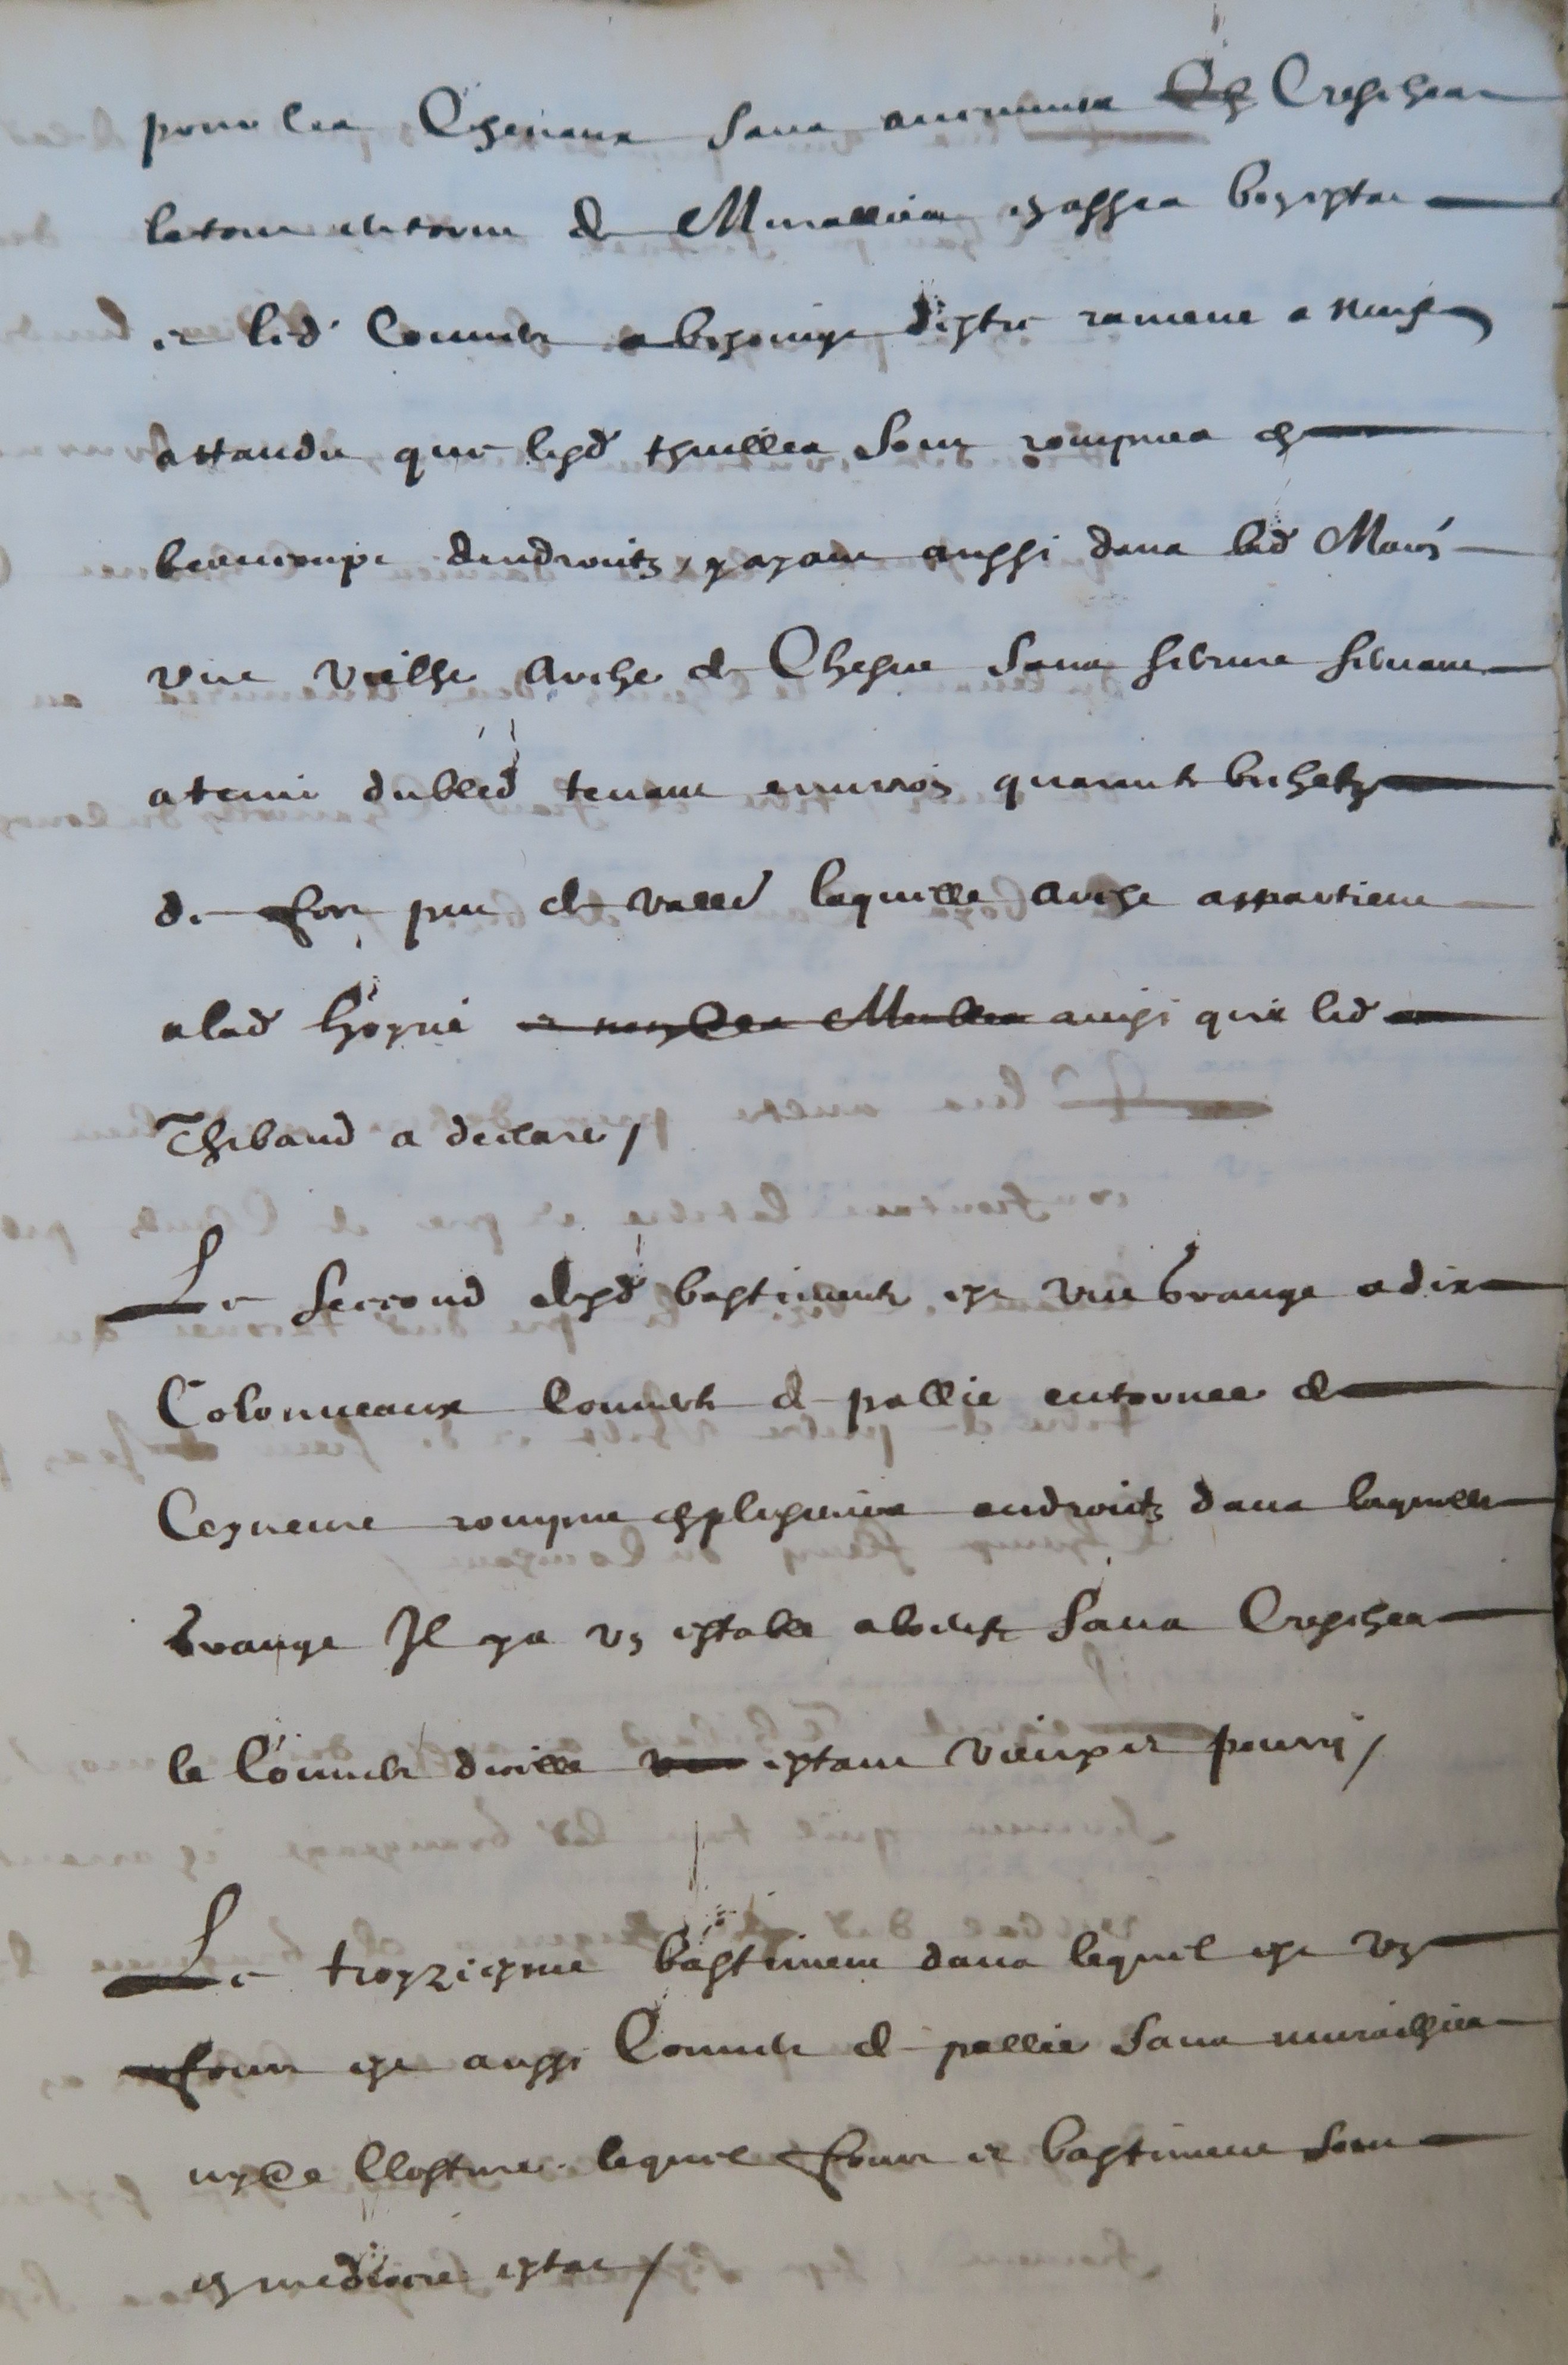 pour les Chevaux sans aucunne Cresches
le tour entourre de Murallies en asses bon estat
et led Couvert a besoing d'estre ramene a neufz
attandu que lesd thuilles sont rompues en
beaucoupt dendroitz, y ayant aussi dans lad Mais
une vielhe Arche de Chesne sans serrure servant
a tenir du bled tenant environ quarante bichetz
de fort peu de valleur laquelle Arche appartient
a lad hoyrie et non des Meubles ainsi que led
Thibaud a declare /
Le second desd bastiments est une Grange a dix
Colonneaux Couverte de pallie entournee de
rompue en plusieurs endroitz dans laquelle
Grange Il y a un estable a boeufz sans Cresches
le Couvert dicelle estant vieux et pourry /
Le troyziesme bastiment dans lequel est un
four est aussi Couvert de pallie sans muraillies
ny Closture lequel four et bastiment sont
en mediocre estat /